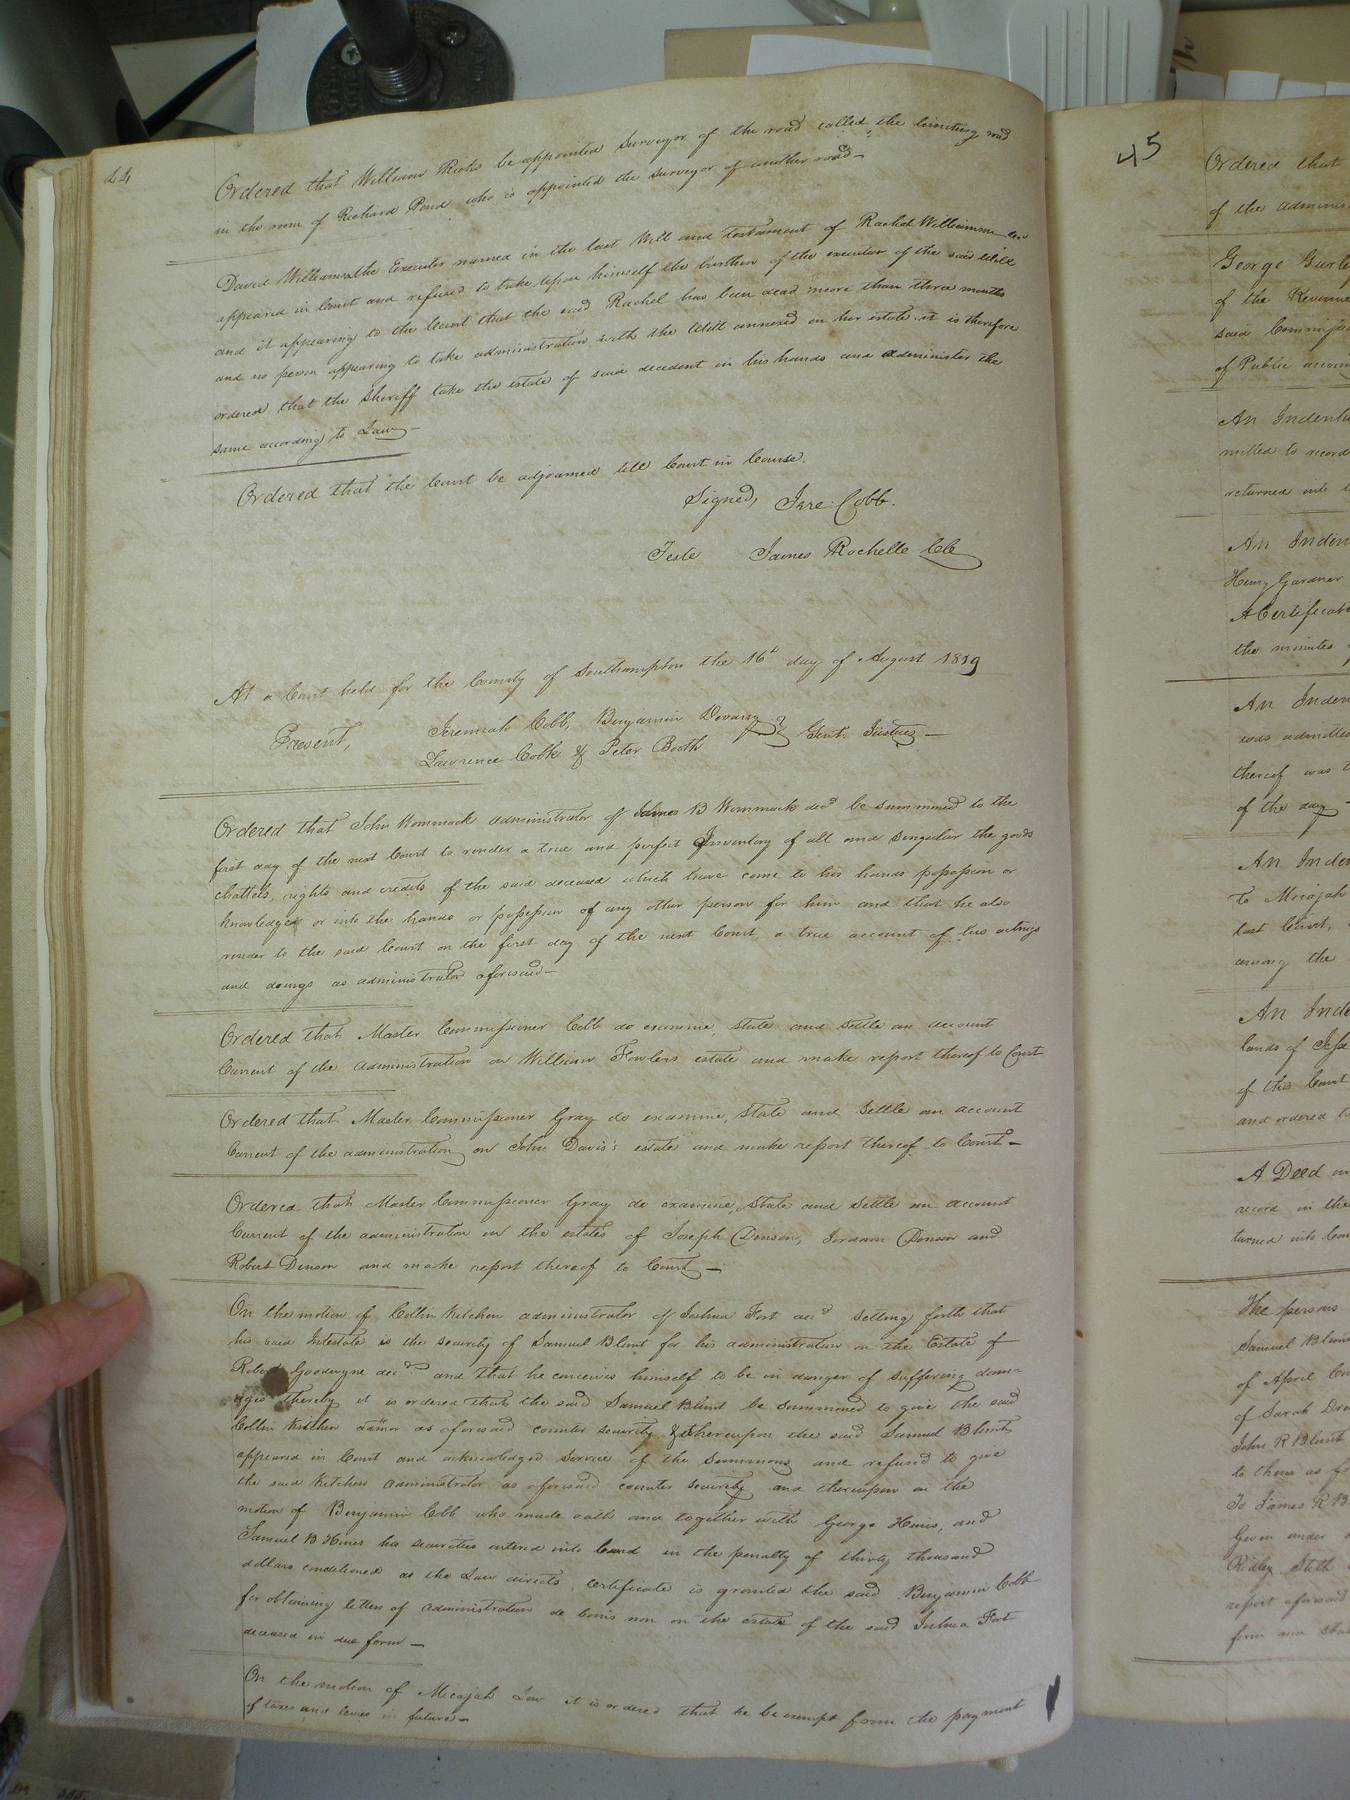 44
Ordered that William Ricks be appointed Surveyor of the road called the road
in the room of Richard Pond who is appointed the surveyor of another road—
David Williamson the Executor named in the last Will and testament of Rachel Williamson decd
appeared in Court and refused to take upon himself the burthen of the executor of the said Will
and it appearing to the Court that the said Rachel has been dead more than three months
and no person appearing to take administration with the Will annexed on her estate it is therefore
ordered that the Sheriff take the estate of said decedent in his hands and administer the
same according to Law—
Ordered that the Court be adjourned till Court in Course.
Signed, Jere: Cobb.
Teste James Rochelle Clk
At a Court held for the County of Southampton the 16th day of August 1819
Present, Jeremiah Cobb, Benjamin Devany
Lawrence Cook & Peter Booth Gent. Justices—
Ordered that John Wommack administrator of James B Wommack decd be summoned to the
first day of the next Court to render a true and perfect Inventory of all and singular the goods
chattels, rights and credits of the said deceased which have come to his hands possession or
knowledge or into the hands or possession of any other person for him and that he also
render to the said Court on the first day of the next Court, a true account of his actings
and doings as administrator aforesaid—
Ordered that Master Commissioner Cobb do examine, State and Settle an account
Current of the administration on William Fowlers estate and make report thereof to Court
Ordered that Master Commissioner Gray do examine, State and Settle an account
Current of the administration on John Davis's estate and make report thereof to Court—
Ordered that Master Commissioner Gray do examine, State and Settle an account
Current of the administration on the estates of Joseph Denson, Jordan Denson and
Robert Denson and make report thereof to Court—
On the motion of Collin Kitchen administrator of Joshua Fort decd setting forth that
his said Intestate is the security of Samuel Blunt for his administration on the Estate of
Robert Goodwyne decd and that he conceives himself to be in danger of suffering dam-
ages thereby it is ordered that the said Samuel Blunt be summoned to give the said
Collin Kitchen admor as aforesaid counter security & thereupon the said Samuel Blunt
appeared in Court and acknowledged Service of the Summons and refused to give
the said Kitchen administrator as aforesaid counter security and thereupon on the
motion of Benjamin Cobb who made oath and together with George Hines, and
Samuel B Hines his securities entered into bond in the penalty of thirty thousand
dollars conditioned as the Law directs, certificate is granted the said Benjamin Cobb
for obtaining letters of administration de bonis non on the estate of the said Joshua Fort
deceased in due form—
On the motion of Micajah Law it is ordered that he be exempt from the payment
of taxes and levies in future—
45
Ordered that
of the adminis
George Gurle
of the Revenue
said Commiss
of Public accoun
An Indent
mitted to record
returned into
An Inden
Henry Gardner
A Certificate
the minutes
An Inden
was admitted
thereof was
of the day—
An Inden
To Micajah
last Court,
among the
An Inde
lands of Jesse
of this Court
and ordered to
A Deed
record in the
turned into Cou
The persons
Samuel Blunt
of April
of Sarah
John R Blunt
to them as
To James R B
Given under
Ridley Stith
report aforesaid
form and